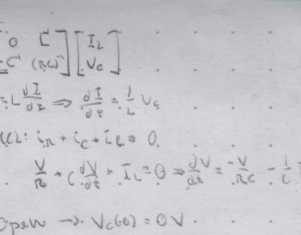 0 L [I_L
C (RC)⁻¹] V_C]
= L dI/dt ⇒ dI/dt = 1/L V_C
KCL: i_R + i_C + i_L = 0
V/R + C dV/dt + I_L = 0 ⇒ dV/dt = -V/RC - 1/C
Open → V_C(∞) = 0V